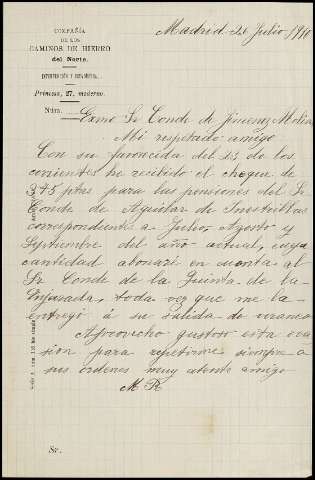 COMPAÑÍA
DE LOS
CAMINOS DE HIERRO
del Norte.
INTERVENCIÓN Y ESTADÍSTICA.
Princesa, 27, moderno.
Núm.
Madrid 24 Julio 1910
Exmo Sr Conde de Jimenez Molina
Mi respetado amigo
Con su favorecida del 13 de los
corrientes he recibido el cheque de
375 ptas para las pensiones del Sr
Conde de Aguilar de Inestrillas
correspondientes a Julio, Agosto y
Septiembre del año actual, cuya
cantidad abonaré en cuenta al
Sr Conde de la Quinta de la
Enjarada, toda vez que me la
entregó á su salida de veraneo
Aprovecho gustoso esta oca
sion para repetirme siempre a
sus órdenes muy atento amigo
M R
Sr.